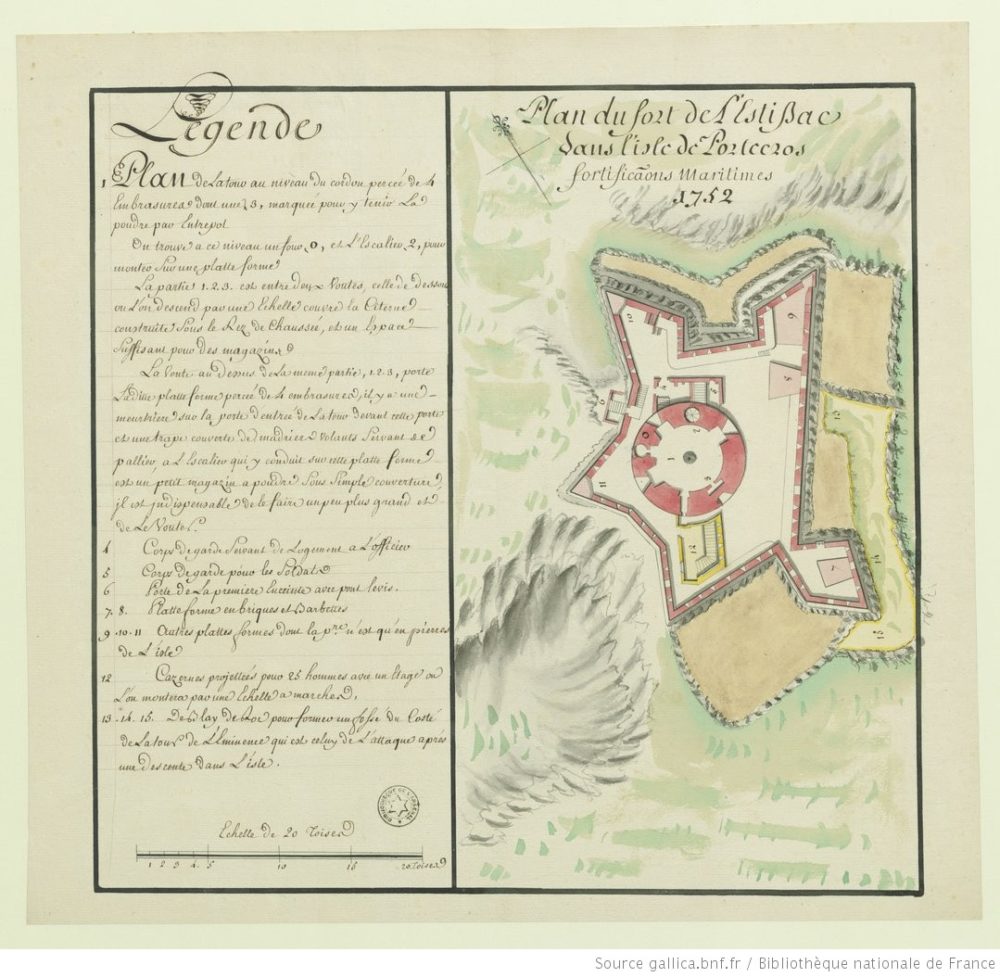 Légende
1 Plan de La tour au niveau du cordon percée de 4
Embrasures dont une 3, marquée pour y tenir La
poudre par Entrepot
On trouve a ce niveau un four 0, et L'Escalier 2, pour
monter Sur une platte forme
La partie 1.2.3. est entre deux Voutes, celle de dessous
ou L'on descend par une Echelle couvre la Citerne
construite Sous le Rez de Chaussée, et un Espace
Suffisant pour des magazins
La Voute au dessus de La meme partie, 1.2.3, porte
Ladite platte forme percée de 4 embrasures, il y a une
meurtriere sur la porte d'entrée de La tour devant cette porte
et une trape couverte de madriers volants Servant de
pallier a L'Escalier qui y conduit sur cette platte forme
est un petit magazin a poudre Sous Simple couverture
il est indispensable de le faire un peu plus grand et
de Le Vouter.
4 Corps de garde Servant de Logement a L'officier
5 Corps de garde pour les Soldats
6 Porte de La premiere Enceinte avec pont levis.
7 8. Platte forme en briques et Barbettes
9 .10.11 Autres plattes formes dont la pre n'est qu'en pierres
de L'isle
12 Cazernes projettées pour 25 hommes avec un Etage ou
L'on montera par une Echelle a marches.
13 .14.15. Deblay de Roc pour former un fossé du Costé
de La tour de L'Eminence qui est celuy de L'attaque après
une descente dans L'isle.
BIBLIOTHEQUE DE L'ARSENAL
Echelle de 20 Toises
1 2 3 4 5 10 15 20 Toises
Plan du fort de L'Estißac
Dans l'isle de Portcros
fortificaõns Maritimes
1752
10
9
8
6
5
4
0
2
1
3
11
12
7
13
14
15
Source gallica.bnf.fr / Bibliothèque nationale de France